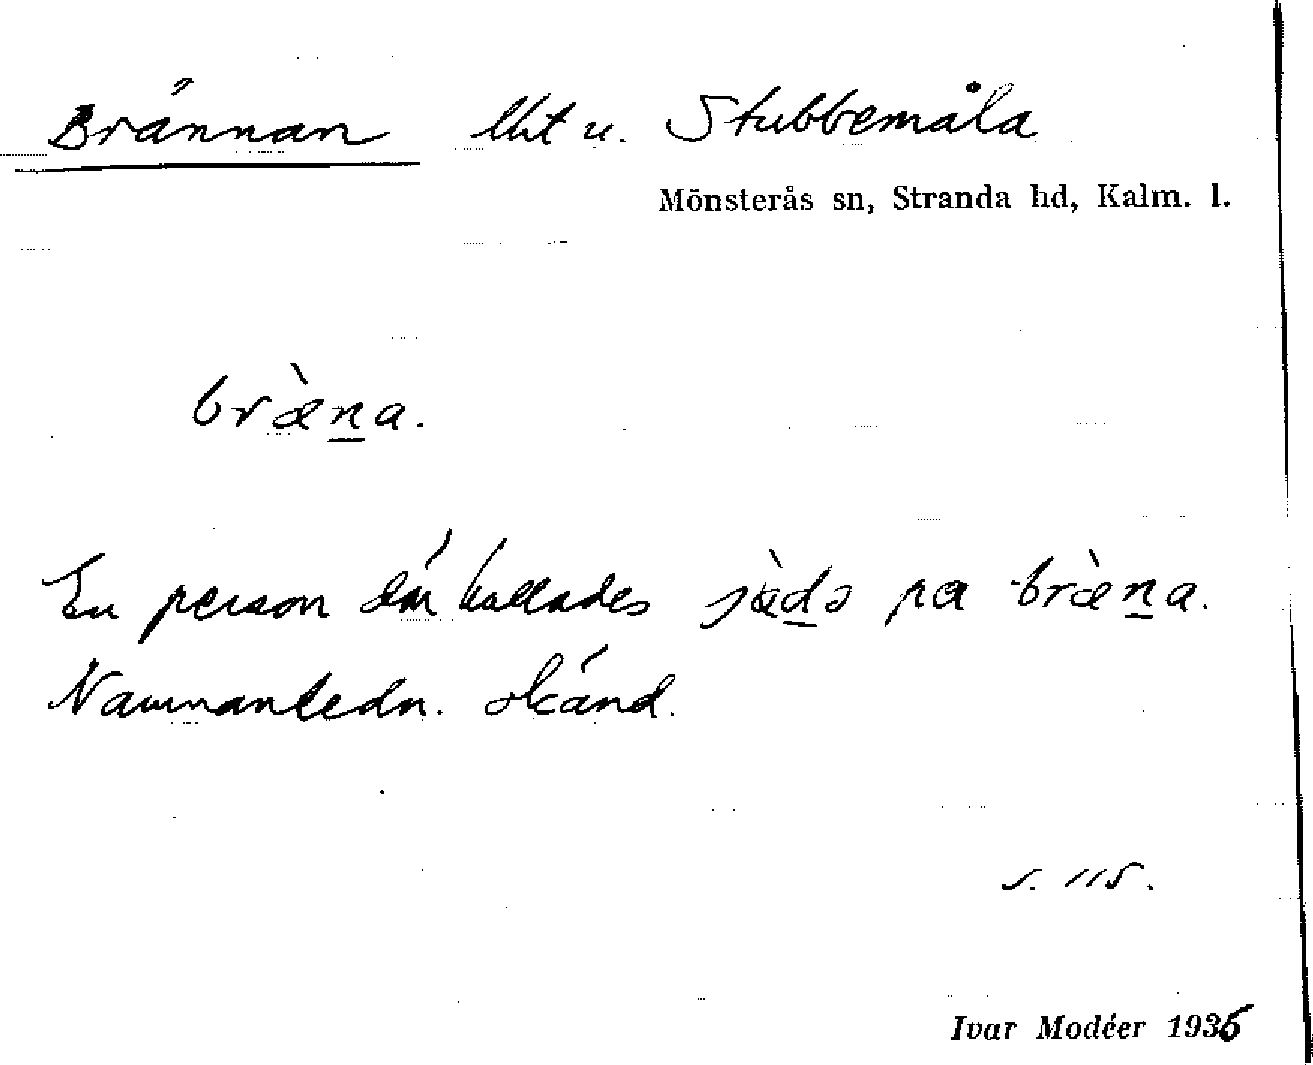 Brännan lht u. Stubbemåla
Mönsterås sn, Stranda hd, Kalm. l.
bræ̀n̲a.
En person där kallades pa bræ̀n̲a.
Namnanledn. okänd.
s. 115.
Ivar Modéer 1936